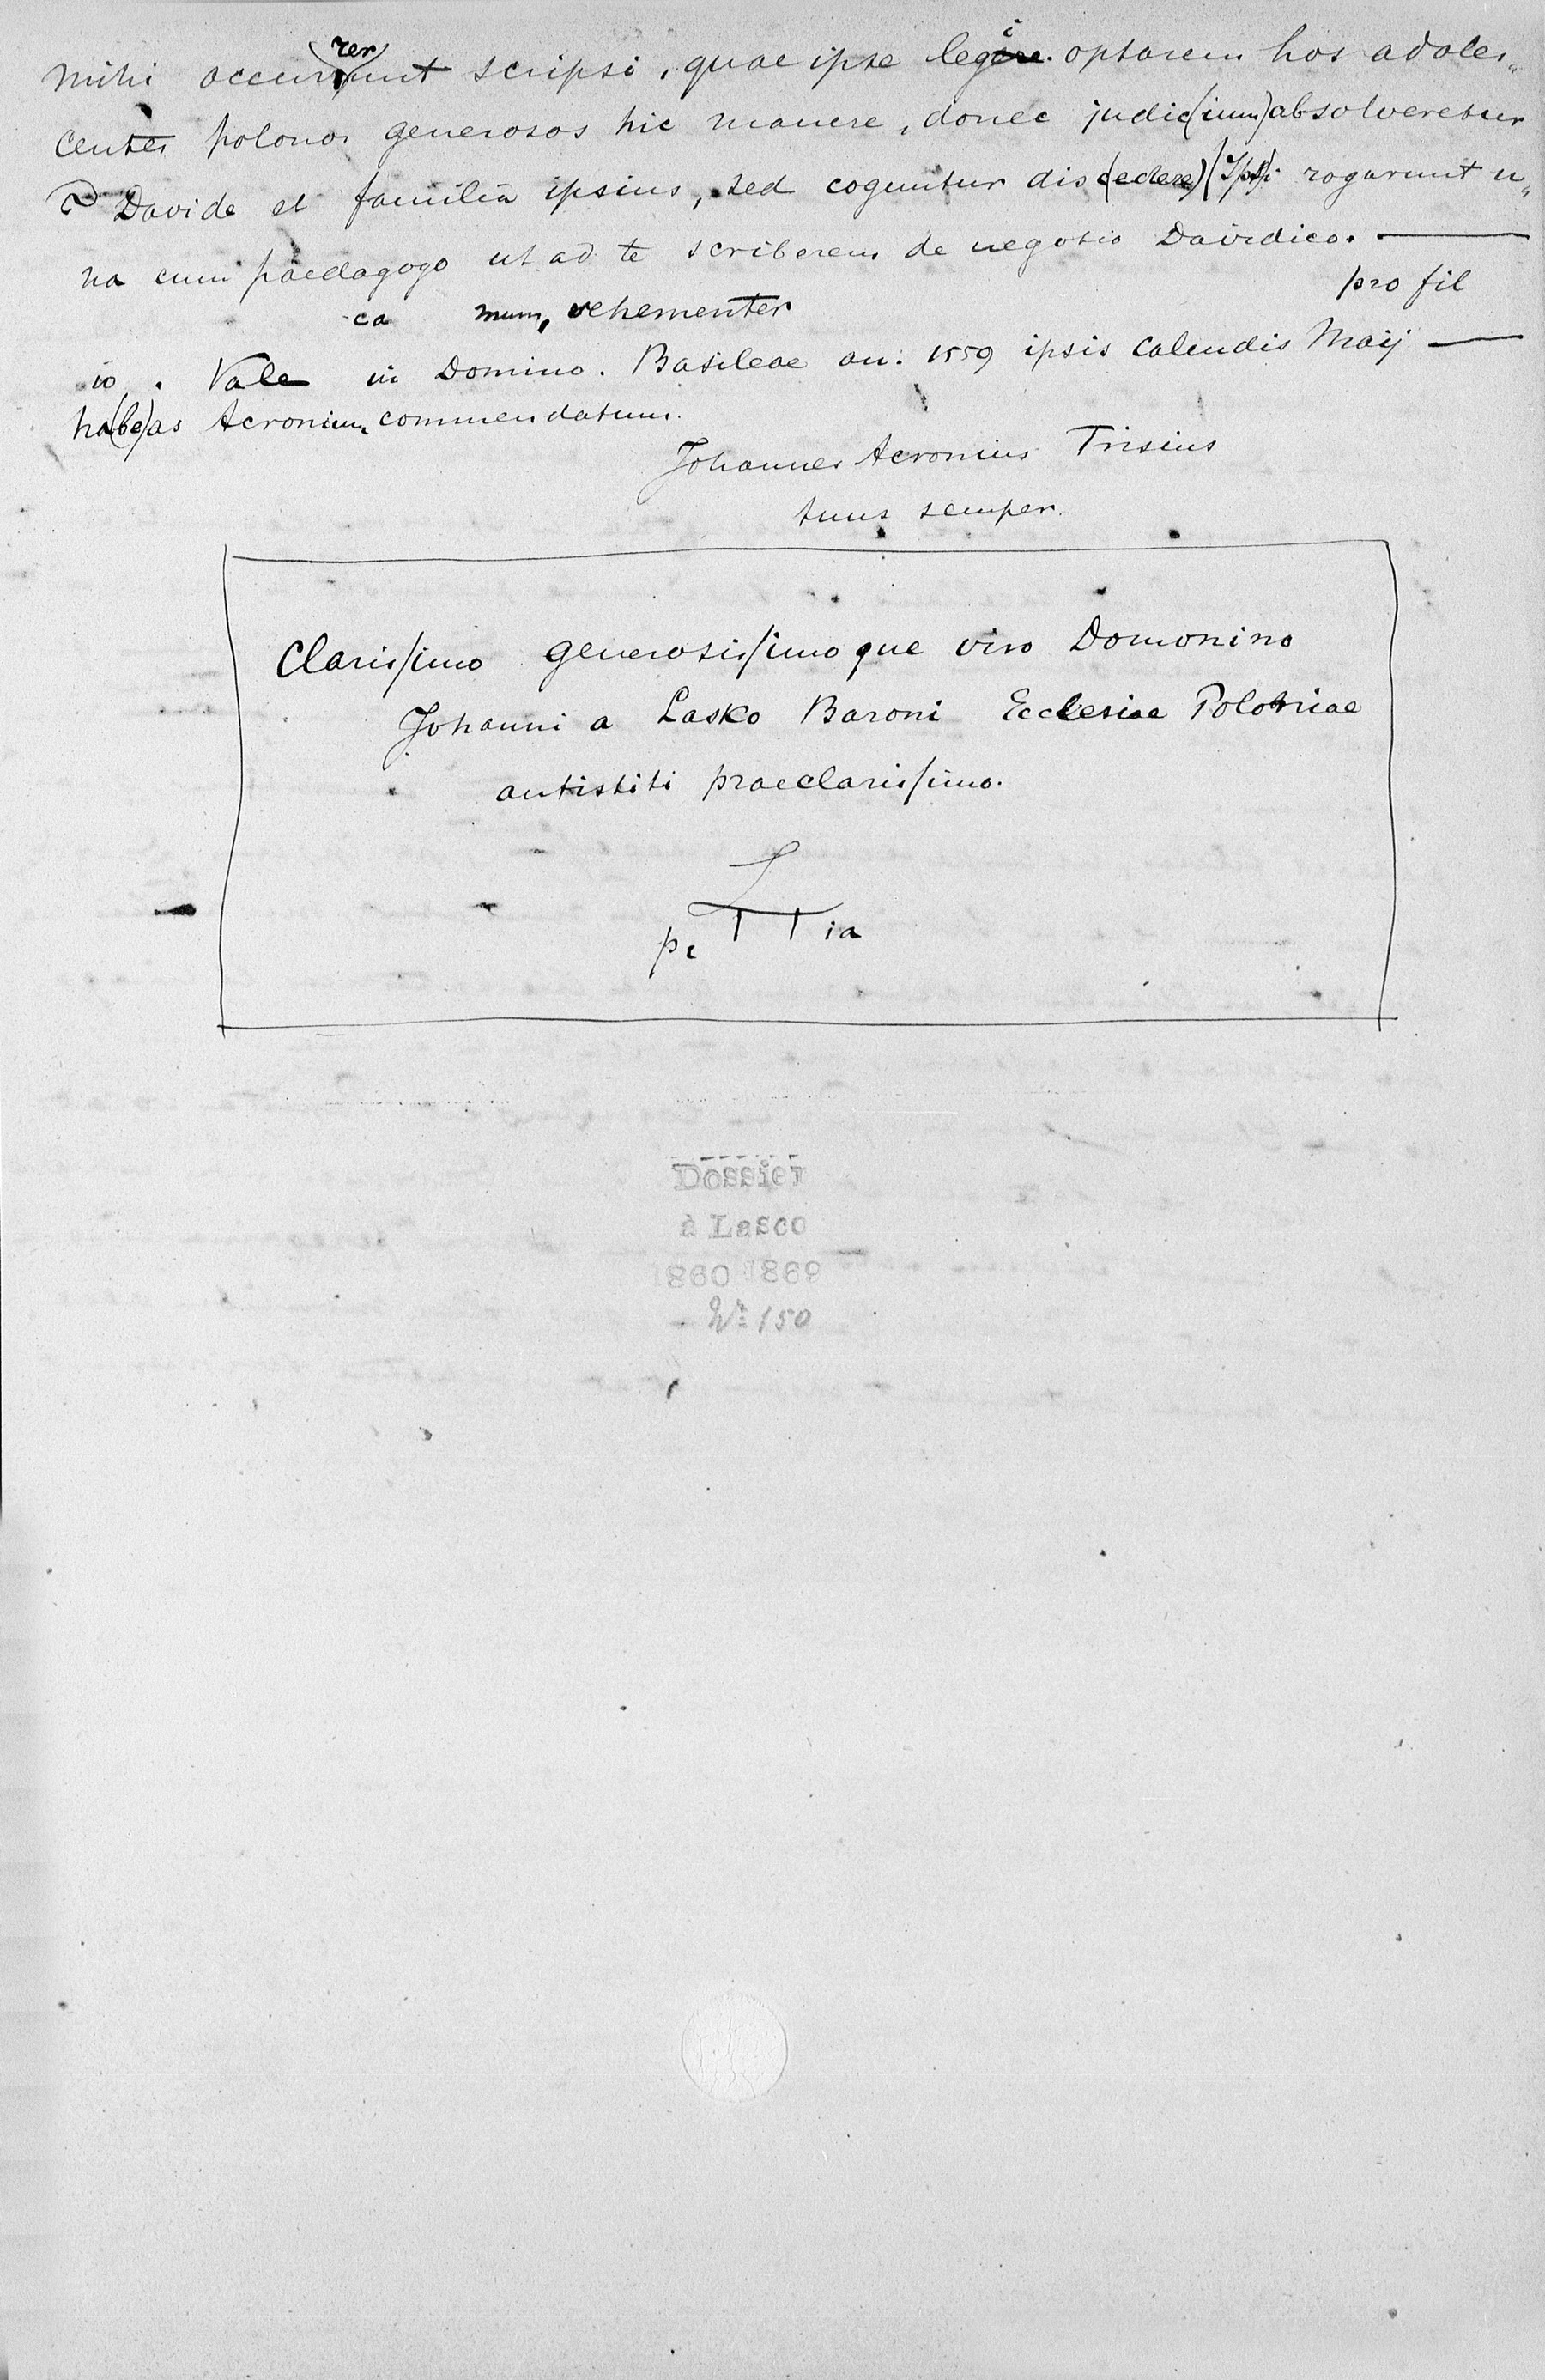 mihi occur(rer)unt scripsi, quae ipse legi. optarem hos adoles„
centes polonos generosos hic manere, donec judic(ium) absolveretur
Davide et familia ipsius, sed coguntur dis(cedere) (Ipsi) rogarunt u„
na cum paedagogo ut ad te scriberem de negotio Davidico. —
pro fil
ca mum, vehementer
io . Vale in Domino. Basileae an. 1559 ipsis Calendis Maij —
ha(be)as Acronium commendatum.
Johannes Acronius Frisius
tuus semper.
Clarissimo generosissimoque viro Domonino
Johanni a Lasko Baroni Ecclesiae Poloniae
antistiti praeclarissimo.
ia
Dossier
à Lasco
1860 1869
No 150